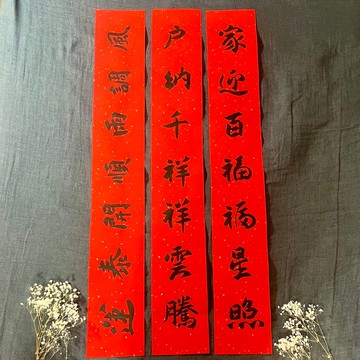 家迎百福福星照
户納千祥祥雲騰
風調雨順開泰運